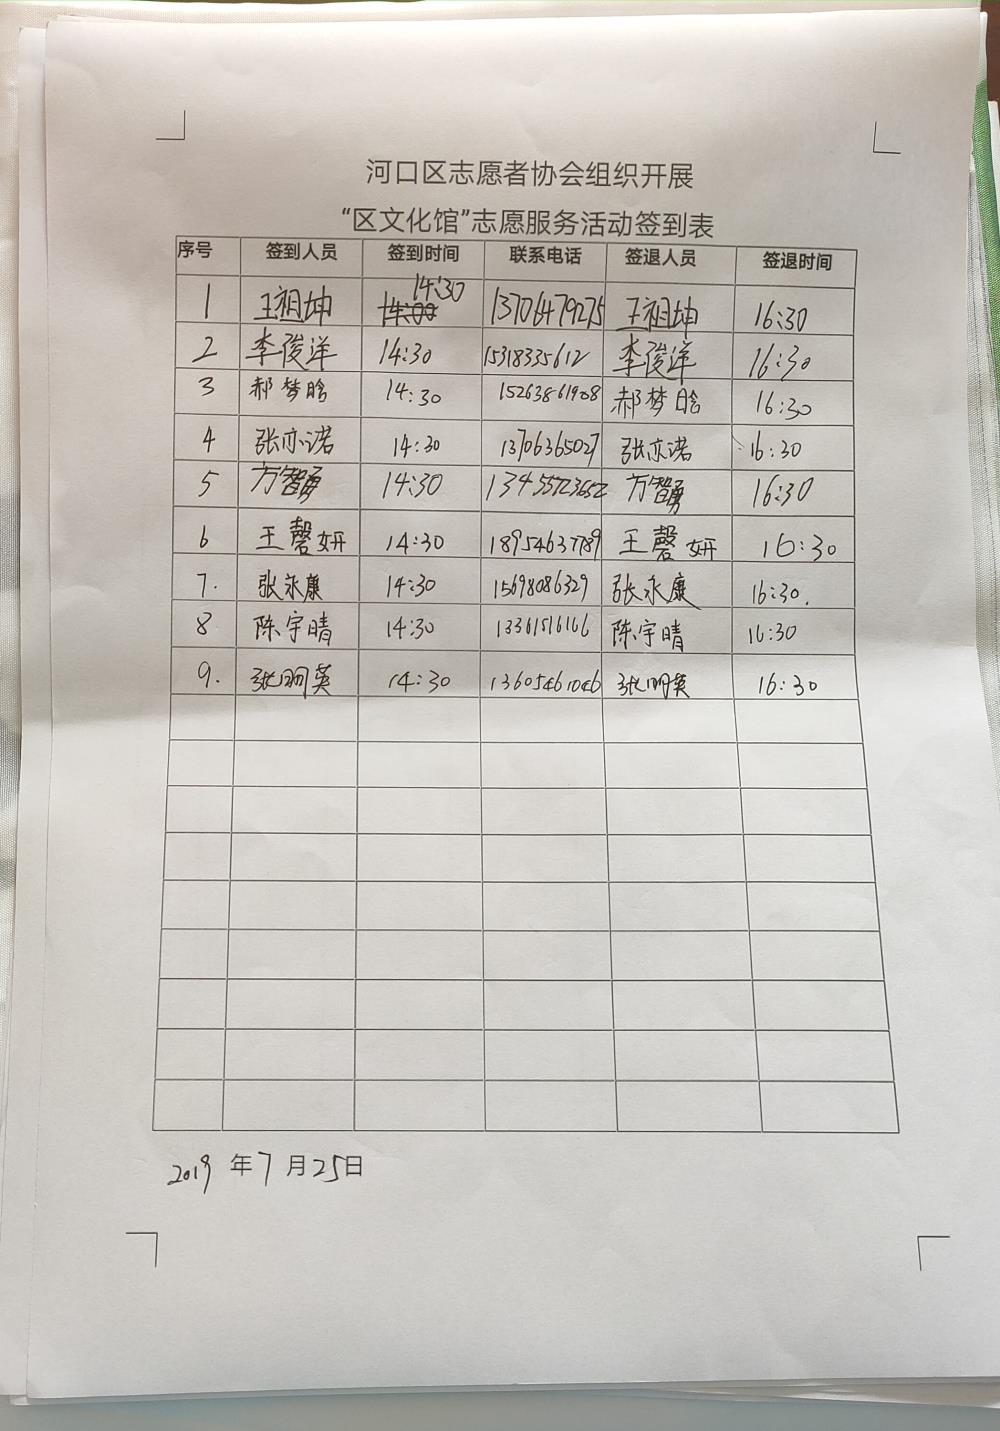 河口区志愿者协会组织开展
“区文化馆”志愿服务活动签到表
序号 签到人员 签到时间 联系电话 签退人员 签退时间
1 王祖坤 14:00 14:30 13706479275 王祖坤 16:30
2 李俊洋 14:30 15318335612 李俊洋 16:30
3 郝梦晗 14:30 15263861908 郝梦晗 16:30
4 张亦诺 14:30 13706365027 张亦诺 16:30
5 万智勇 14:30 13455723652 万智勇 16:30
6 王馨妍 14:30 18954637789 王馨妍 16:30
7. 张永康 14:30 15698086329 张永康 16:30.
8 陈宇晴 14:30 13361516166 陈宇晴 16:30
9. 张明英 14:30 13605461046 张明英 16:30
2019年7月25日